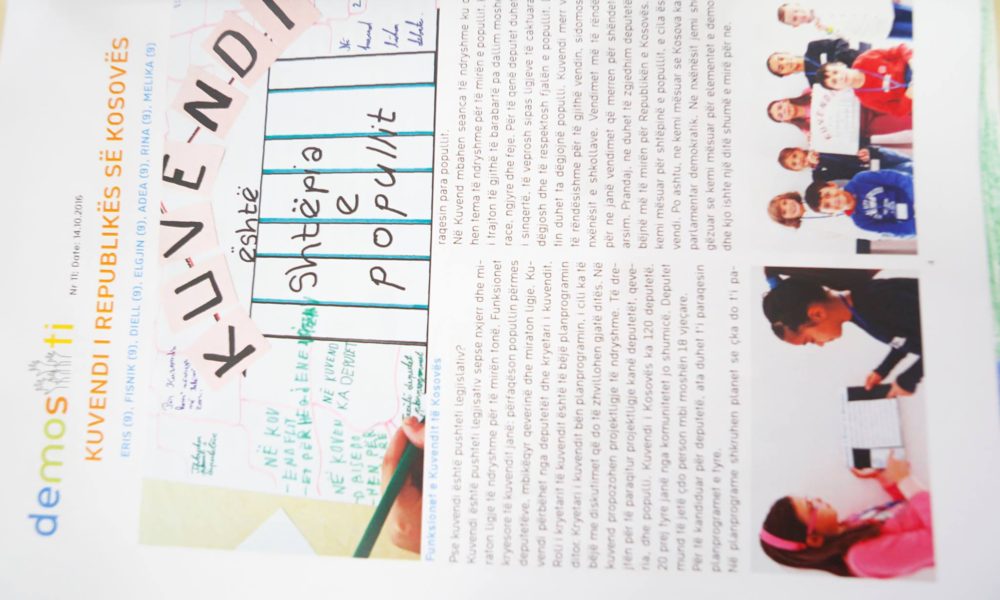 demos ti
Nr 11; Date: 14.10.2016
KUVENDI I REPUBLIKËS SË KOSOVËS
ERIS (9), FISNIK (9), DIELL (9), ELGJIN (9), ADEA (9), RINA (9), MELIKA (9)
K-U-V-E-N-D-I
është
Shtëpia
e
popullit
NË KUV
NË KUVEND
KA DEPUTET
Funksionet e Kuvendit të Kosovës
Pse kuvendi është pushteti legjislativ?
Kuvendi është pushteti legjisativ sepse nxjerr dhe mi-
raton ligje të ndryshme për të mirën tonë. Funksionet
kryesore të kuvendit janë: përfaqëson popullin përmes
deputetëve, mbikëqyr qeverinë dhe miraton ligje. Ku-
vendi përbëhet nga deputetët dhe kryetari i kuvendit.
Roli i kryetarit të kuvendit është të bëjë planprogramin
ditor. Kryetari i kuvendit bën planprogramin, i cili ka të
bëjë me diskutimet që do të zhvillohen gjatë ditës. Në
kuvend propozohen projektligje të ndryshme. Të dre-
jtën për të paraqitur projektligje kanë deputetët, qeve-
ria, dhe populli. Kuvendi i Kosovës ka 120 deputetë.
20 prej tyre janë nga komunitetet jo shumicë. Deputet
mund të jetë çdo person mbi moshën 18 vjeçare.
Për të kanduar për deputetë, ata duhet t'i paraqesin
planprogramet e tyre.
Në planprograme shkruhen planet se çka do t'i pa-
raqesin para popullit.
Në Kuvend mbahen seanca të ndryshme ku
hen tema të ndryshme për të mirën e popullit.
i trajton të gjithë të barabartë pa dallim moshe
race, ngjyre dhe feje. Për të qenë deputet duhet
i sinqertë, të veprosh sipas ligjeve të caktuara
dëgjosh dhe të respektosh fjalën e popullit.
tin duhet ta dëgjojnë populli. Kuvendi merr
të rëndësishme për të gjithë vendin, sidomos
nxënësit e shkollave. Vendimet më të rëndë
për ne janë vendimet që merren për shëndet
arsim. Prandaj, ne duhet të zgjedhim deputetë
bëjnë më të mirën për Republikën e Kosovës.
kemi mësuar për shtëpinë e popullit, e cila ës
vendi. Po ashtu, ne kemi mësuar se Kosova ka
parlamentar demokratik. Ne nxënësit jemi sh
gëzuar se kemi mësuar për elementet e demo
dhe kjo ishte një ditë shumë e mirë për ne.